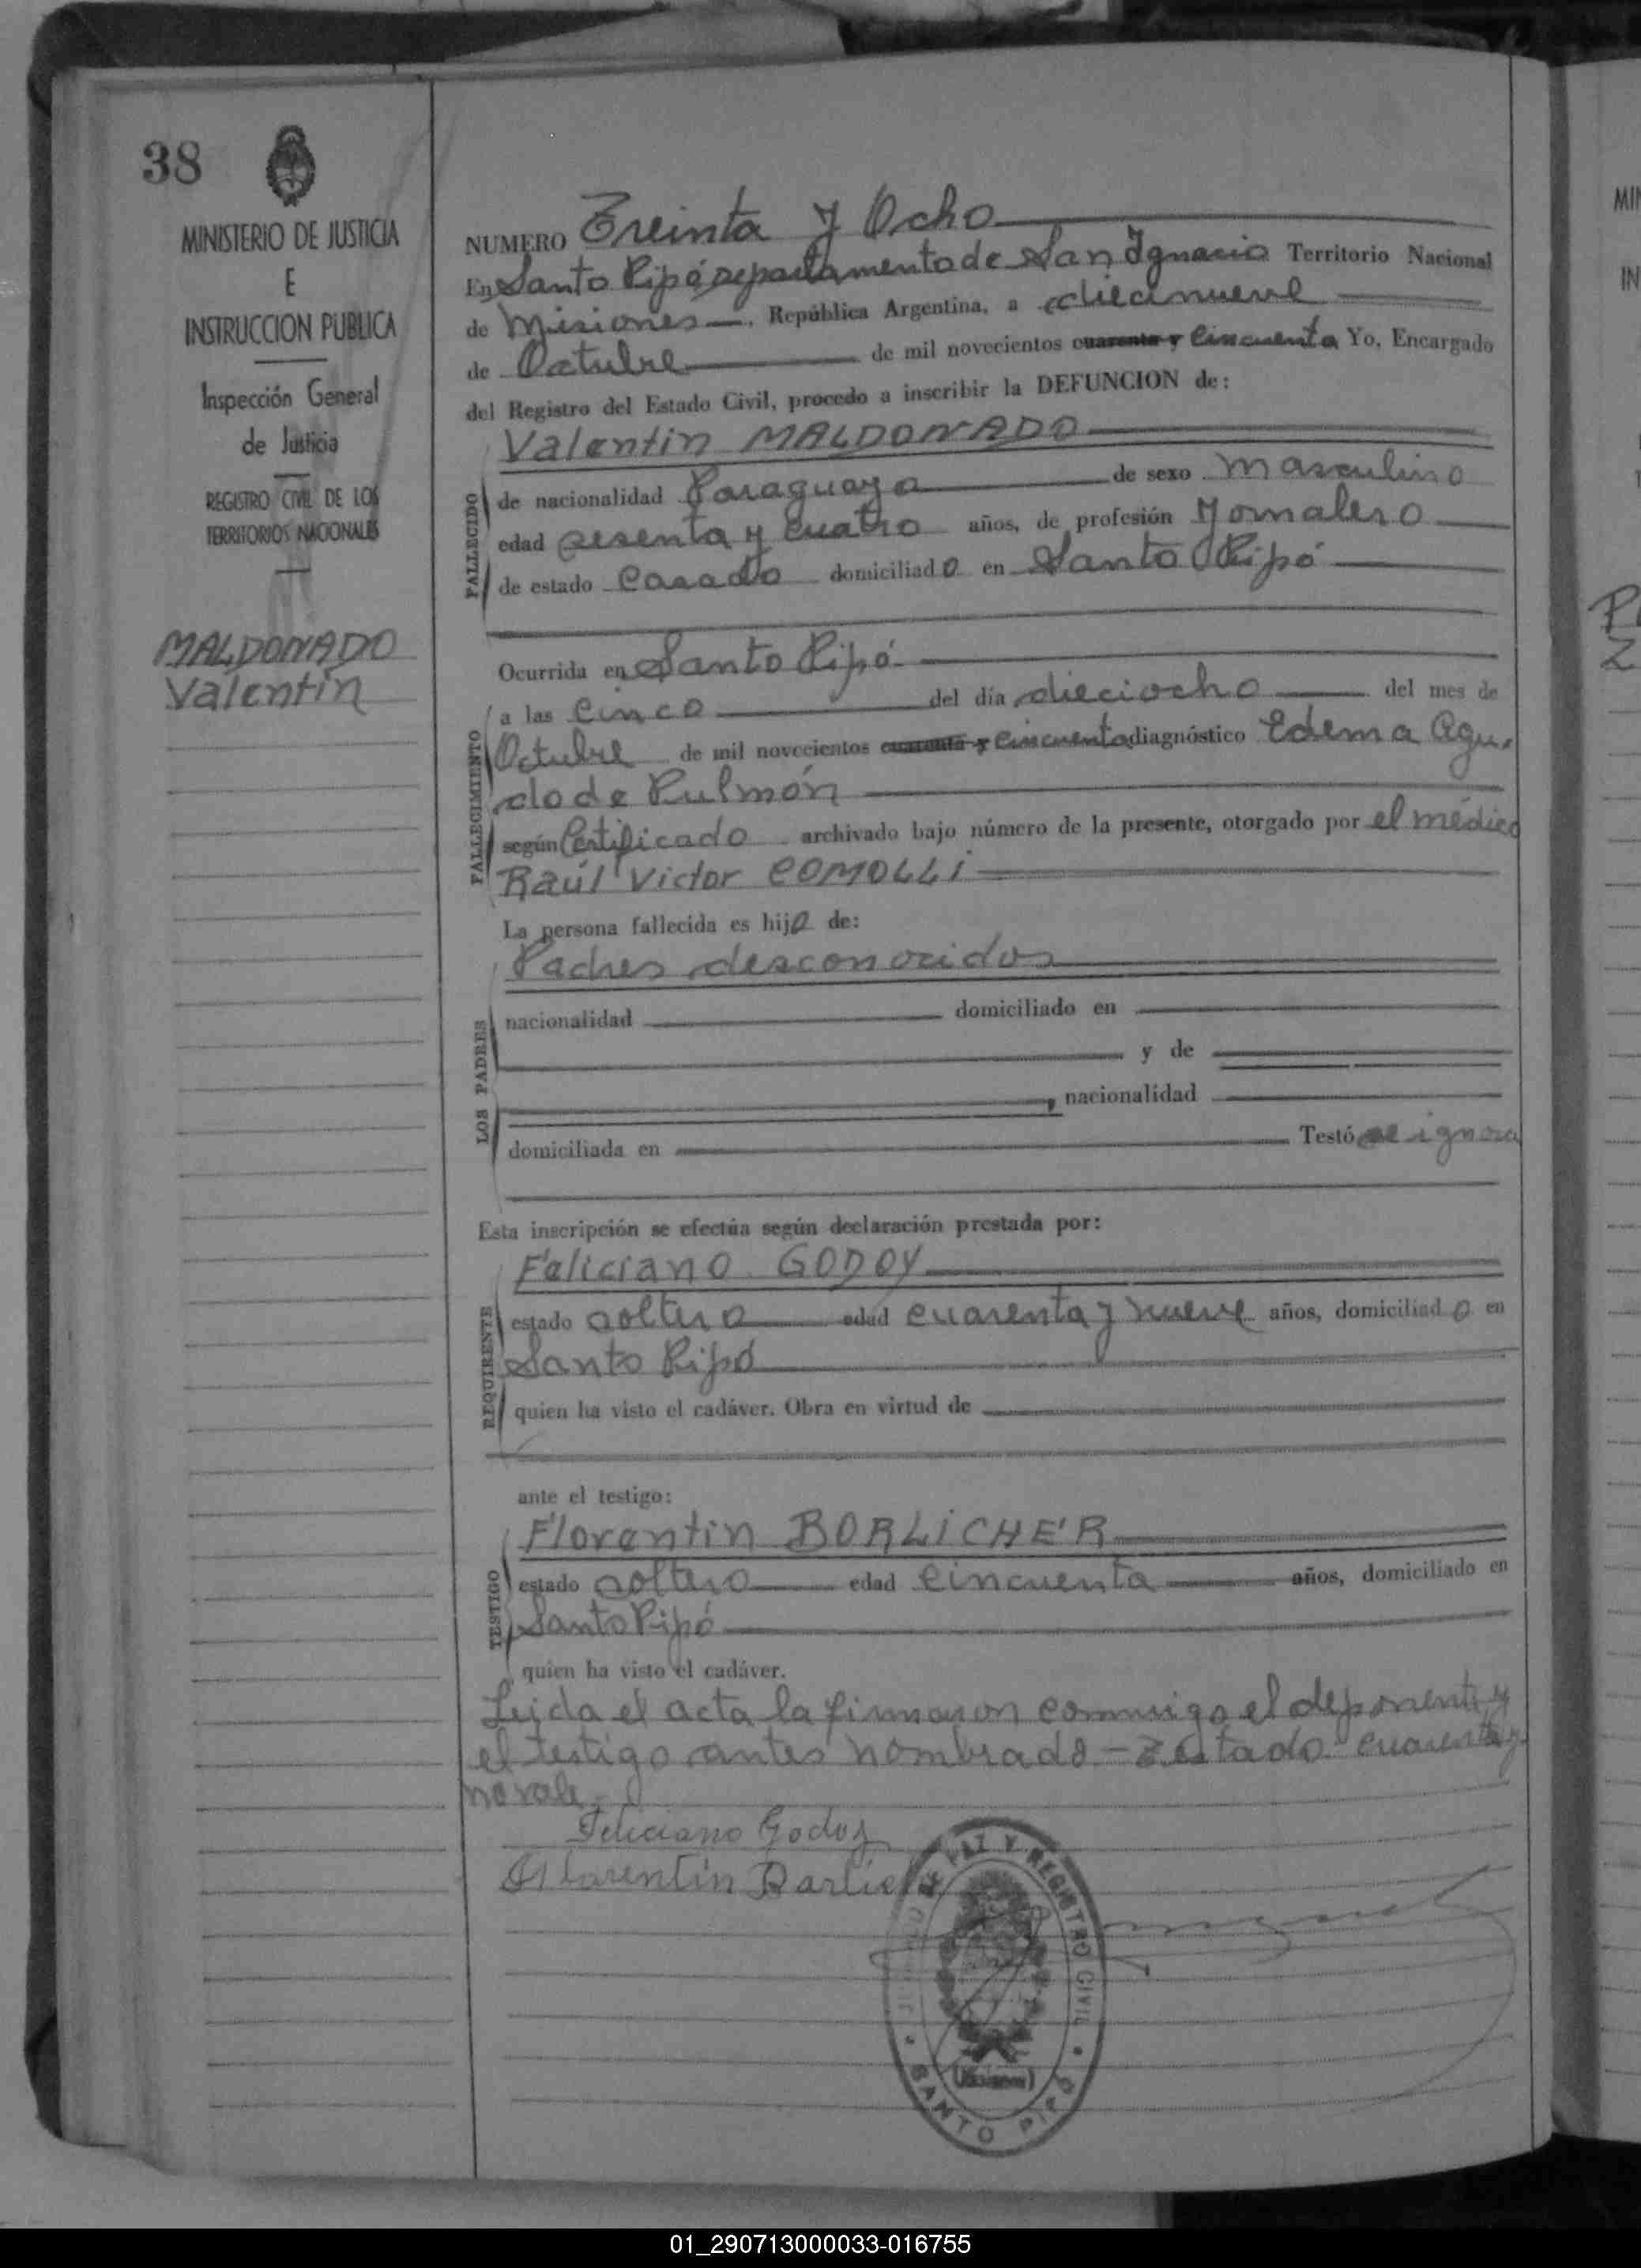 38
MINISTERIO DE JUSTICIA
E
INSTRUCCION PUBLICA
Inspección General
de Justicia
REGISTRO CIVIL DE LOS
TERRITORIOS NACIONALES
MALDONADO
Valentín
NUMERO Treinta y Ocho
En Santo Pipó departamento de San Ignacio Territorio Nacional
de Misiones, República Argentina, a diecinueve
de Octubre de mil novecientos cuarenta y cincuenta Yo, Encargado
del Registro del Estado Civil, procedo a inscribir la DEFUNCION de:
Valentin MALDONADO
FALLECIDO
de nacionalidad Paraguaya de sexo masculino
edad sesenta y cuatro años, de profesión Jornalero
de estado Casado domiciliado en Santo Pipó
Ocurrida en Santo Pipó
FALLECIMIENTO
a las cinco del día dieciocho del mes de
Octubre de mil novecientos cuarenta y cincuenta diagnóstico Edema Agu-
do de Pulmón
según Certificado archivado bajo número de la presente, otorgado por el médico
Raúl Victor COMOLLI
La persona fallecida es hijo de:
Padres desconocidos
LOS PADRES
nacionalidad domiciliado en
y de
, nacionalidad
domiciliada en Testó se ignora
Esta inscripción se efectúa según declaración prestada por:
Feliciano GODOY
REQUIRENTE
estado soltero edad cuarenta y nueve años, domiciliado en
Santo Pipó
quien ha visto el cadáver. Obra en virtud de
ante el testigo:
Florentin BORLICHER
TESTIGO
estado soltero edad cincuenta años, domiciliado en
Santo Pipó
quien ha visto el cadáver.
Leida el acta la firmaron conmigo el deponente y
el testigo antes nombrado - Testado cuarenta y
no vale.
Feliciano Godoy
Florentin
DE PAZ Y REGISTRO CIVIL
(Misiones)
SANTO PIPO
MIN
IN
01_290713000033-016755